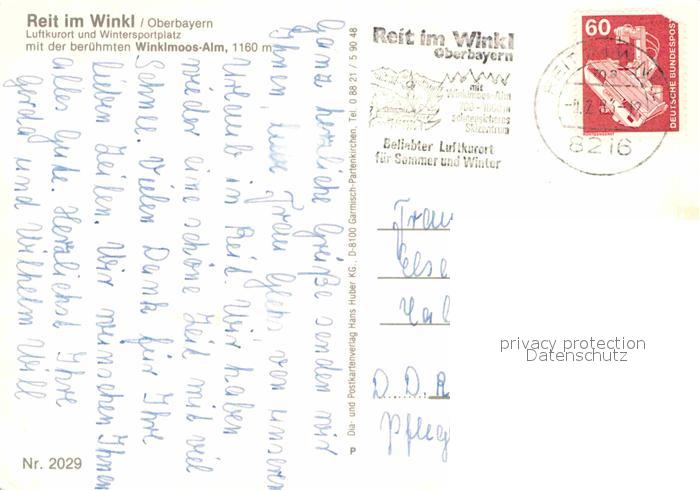 Reit im Winkl / Oberbayern
Luftkurort und Wintersportplatz
mit der berühmten Winklmoos-Alm, 1160 m
Ganz herzliche Grüße senden wir
Ihnen, liebe Frau von unserem
Urlaub in Reit. Wir haben
wieder eine schöne Zeit mit viel
Schnee. Vielen Dank für Ihre
lieben Zeilen. Wir wünschen Ihnen
alles Gute. Herzlichst Ihre
Gerda und Wilhelm Will
Nr. 2029
Dia- und Postkartenverlag Hans Huber KG., D-8100 Garmisch-Partenkirchen, Tel. 0 88 21 / 5 90 48
P
Reit im Winkl
Oberbayern
mit
Winklmoos-Alm
schneesicheres
Skizentrum
Beliebter Luftkurort
für Sommer und Winter
8216
60
DEUTSCHE BUNDESPOST
Frau
Else
D. D. R
Pfleg
privacy protection
Datenschutz